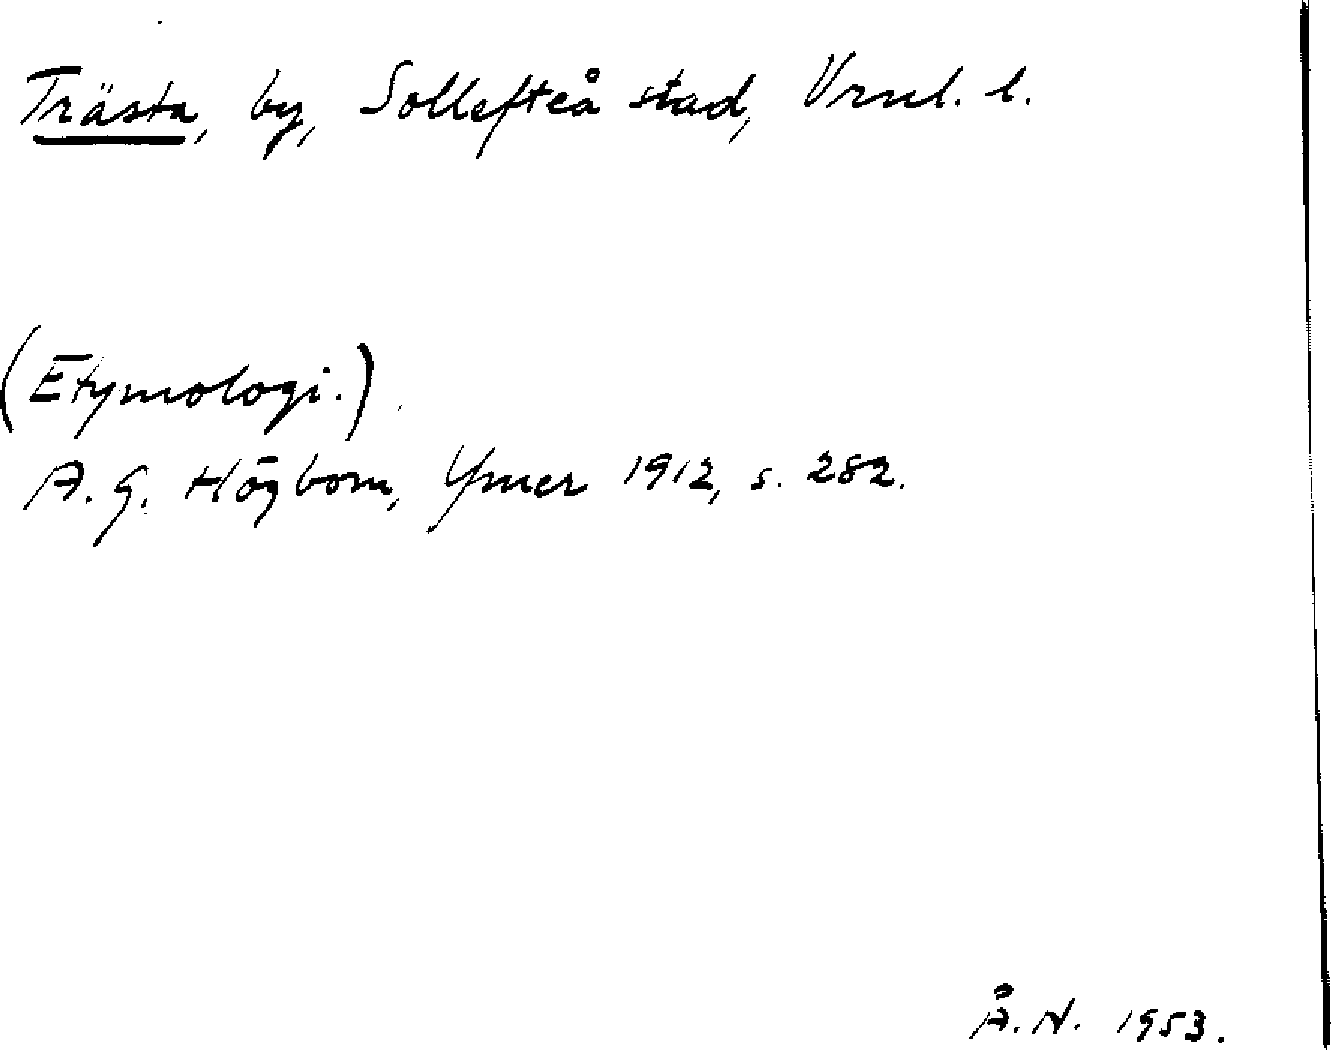 Trästa, by, Sollefteå stad, Vrnl. l.
(Etymologi.)
A. G. Högbom, Ymer 1912, s. 282.
Å. N. 1953.